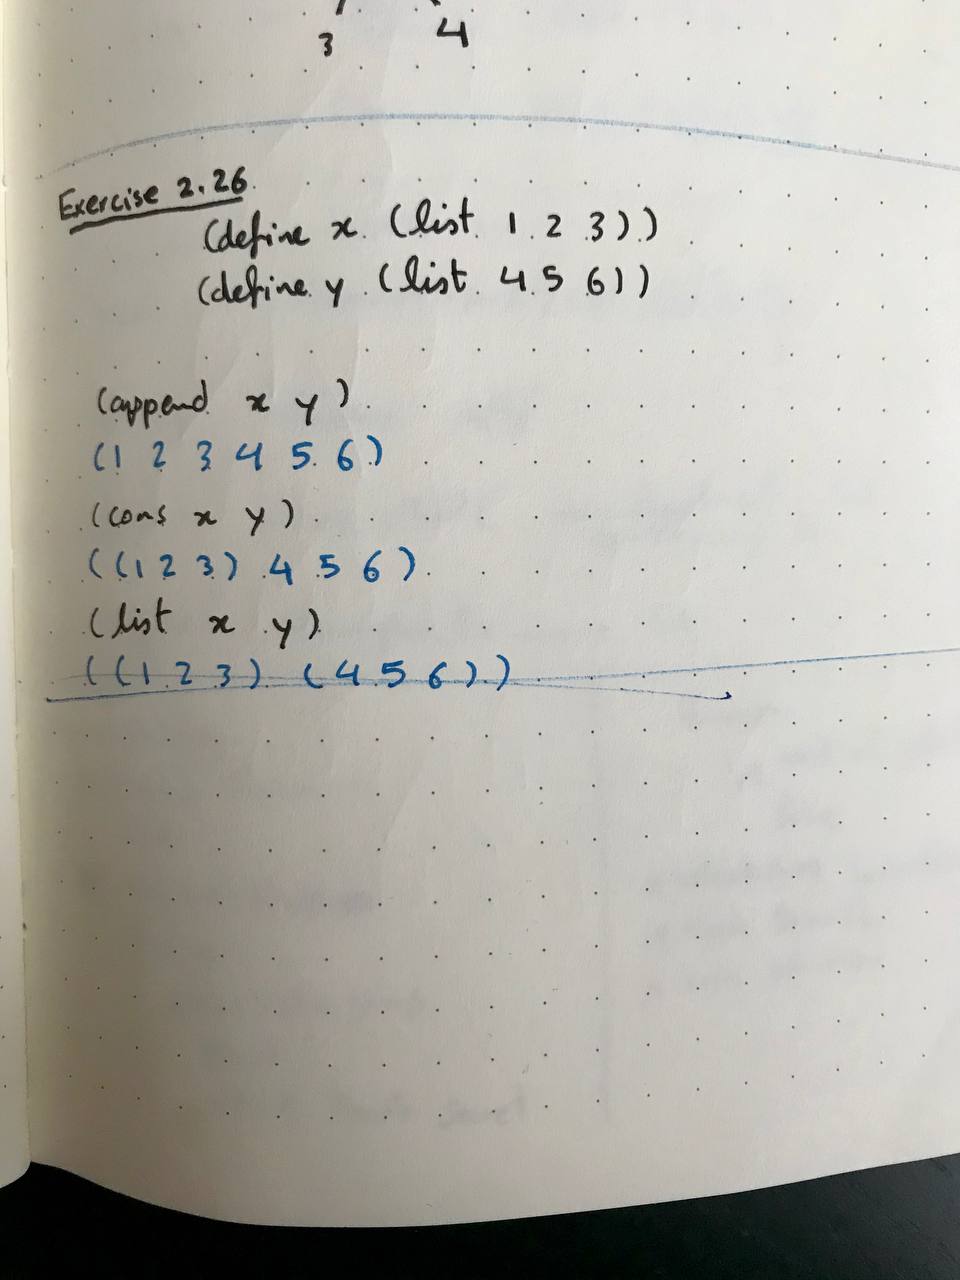 3 4
Exercise 2.26
(define x (list 1 2 3))
(define y (list 4 5 6))
(append x y)
(1 2 3 4 5 6)
(cons x y)
((1 2 3) 4 5 6)
(list x y)
((1 2 3) (4 5 6))